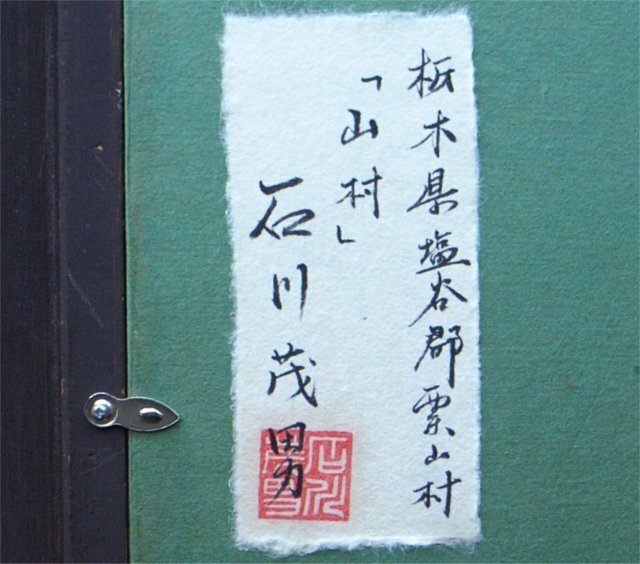 栃木県塩谷郡栗山村
「山村」
石川茂男